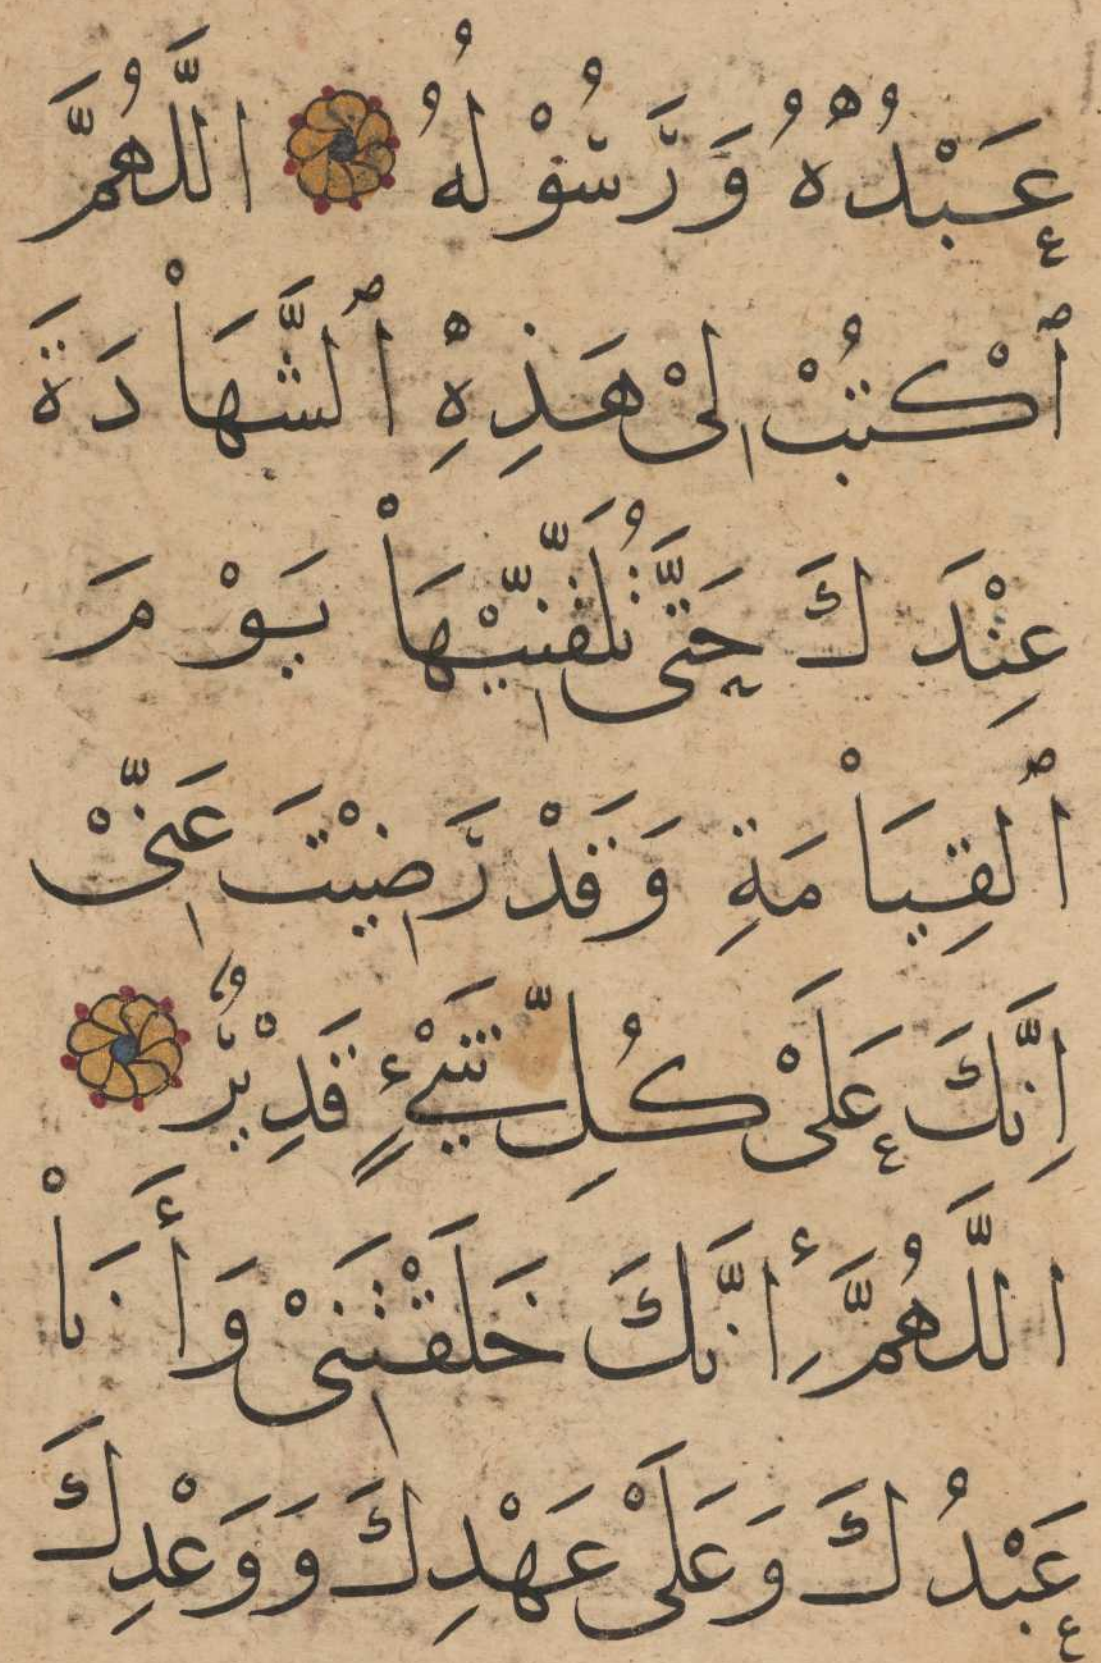 عَبْدُهُ وَرَّسُوْلُهُ اللَّهُمَّ
ٱكْتُبْ لِىْ هَذِهِ ٱلشَّهَاْدَةَ
عِنْدَكَ حَتَّى تُلَقِّنِّيْهَاْ يَوْمَ
ٱلقِيَاْمَةِ وَقَدْ رَّضِيْتَ عَنِّىْ
اِنَّكَ عَلَىْ كُلِّ شَىْءٍ قَدِيْرٌ
اللَّهُمَّ إِنَّكَ خَلَقْتَنِىْ وَأَنَاْ
عَبْدُكَ وَعَلَىْ عَهْدِكَ وَوَعْدِكَ